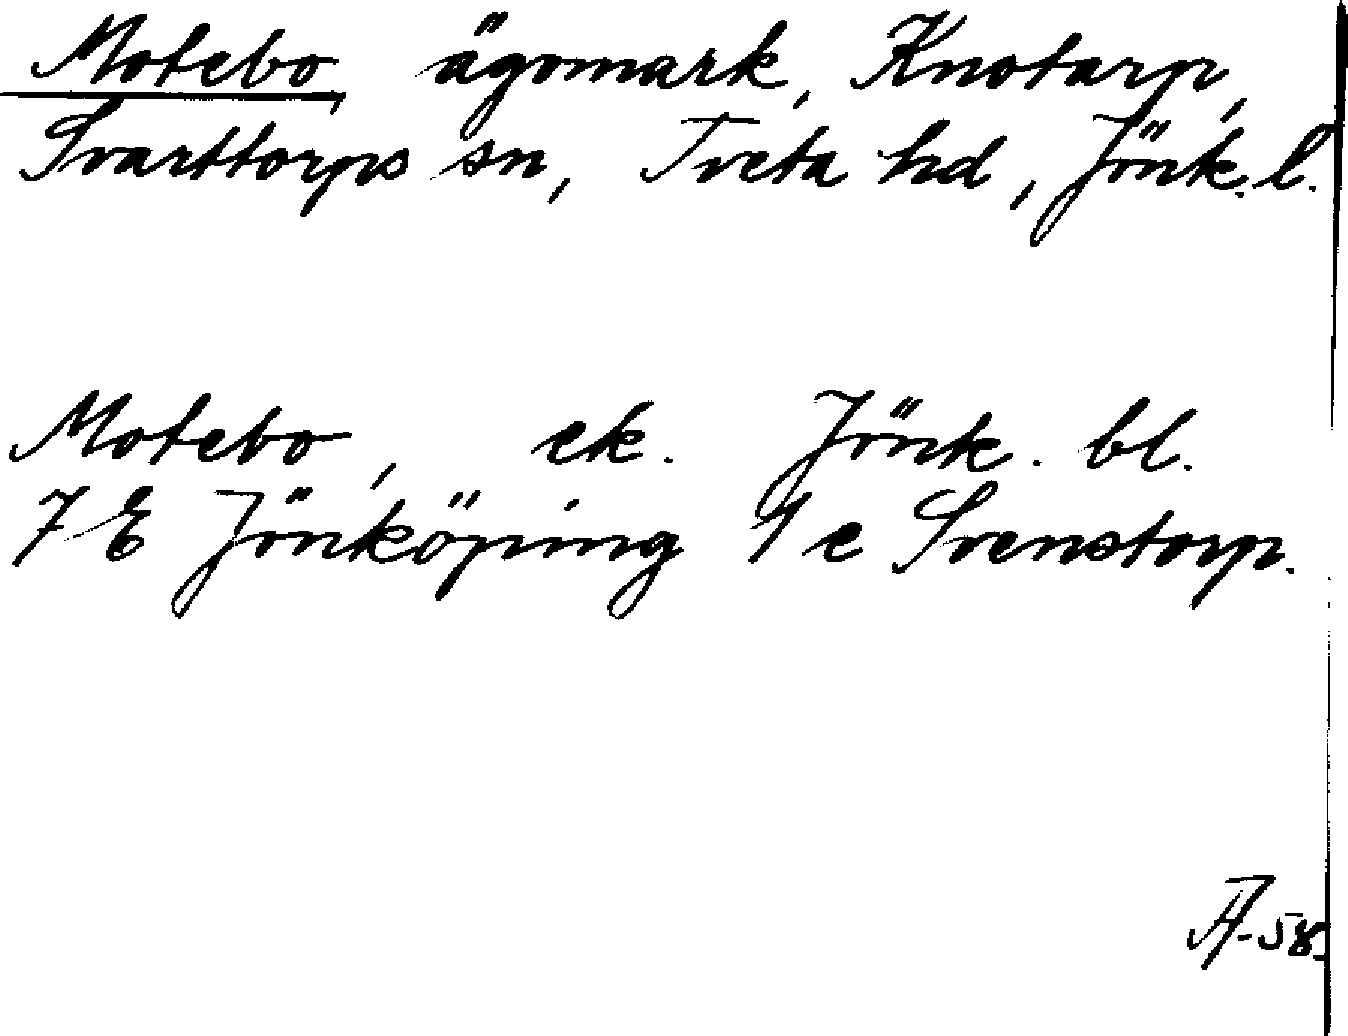 Motebo, ägomark, Knotarp,
Svarttorps sn, Tveta hd, Jönk. l.
Motebo, ek. Jönk. bl.
7 E Jönköping 1 e Svenstorp.
-58